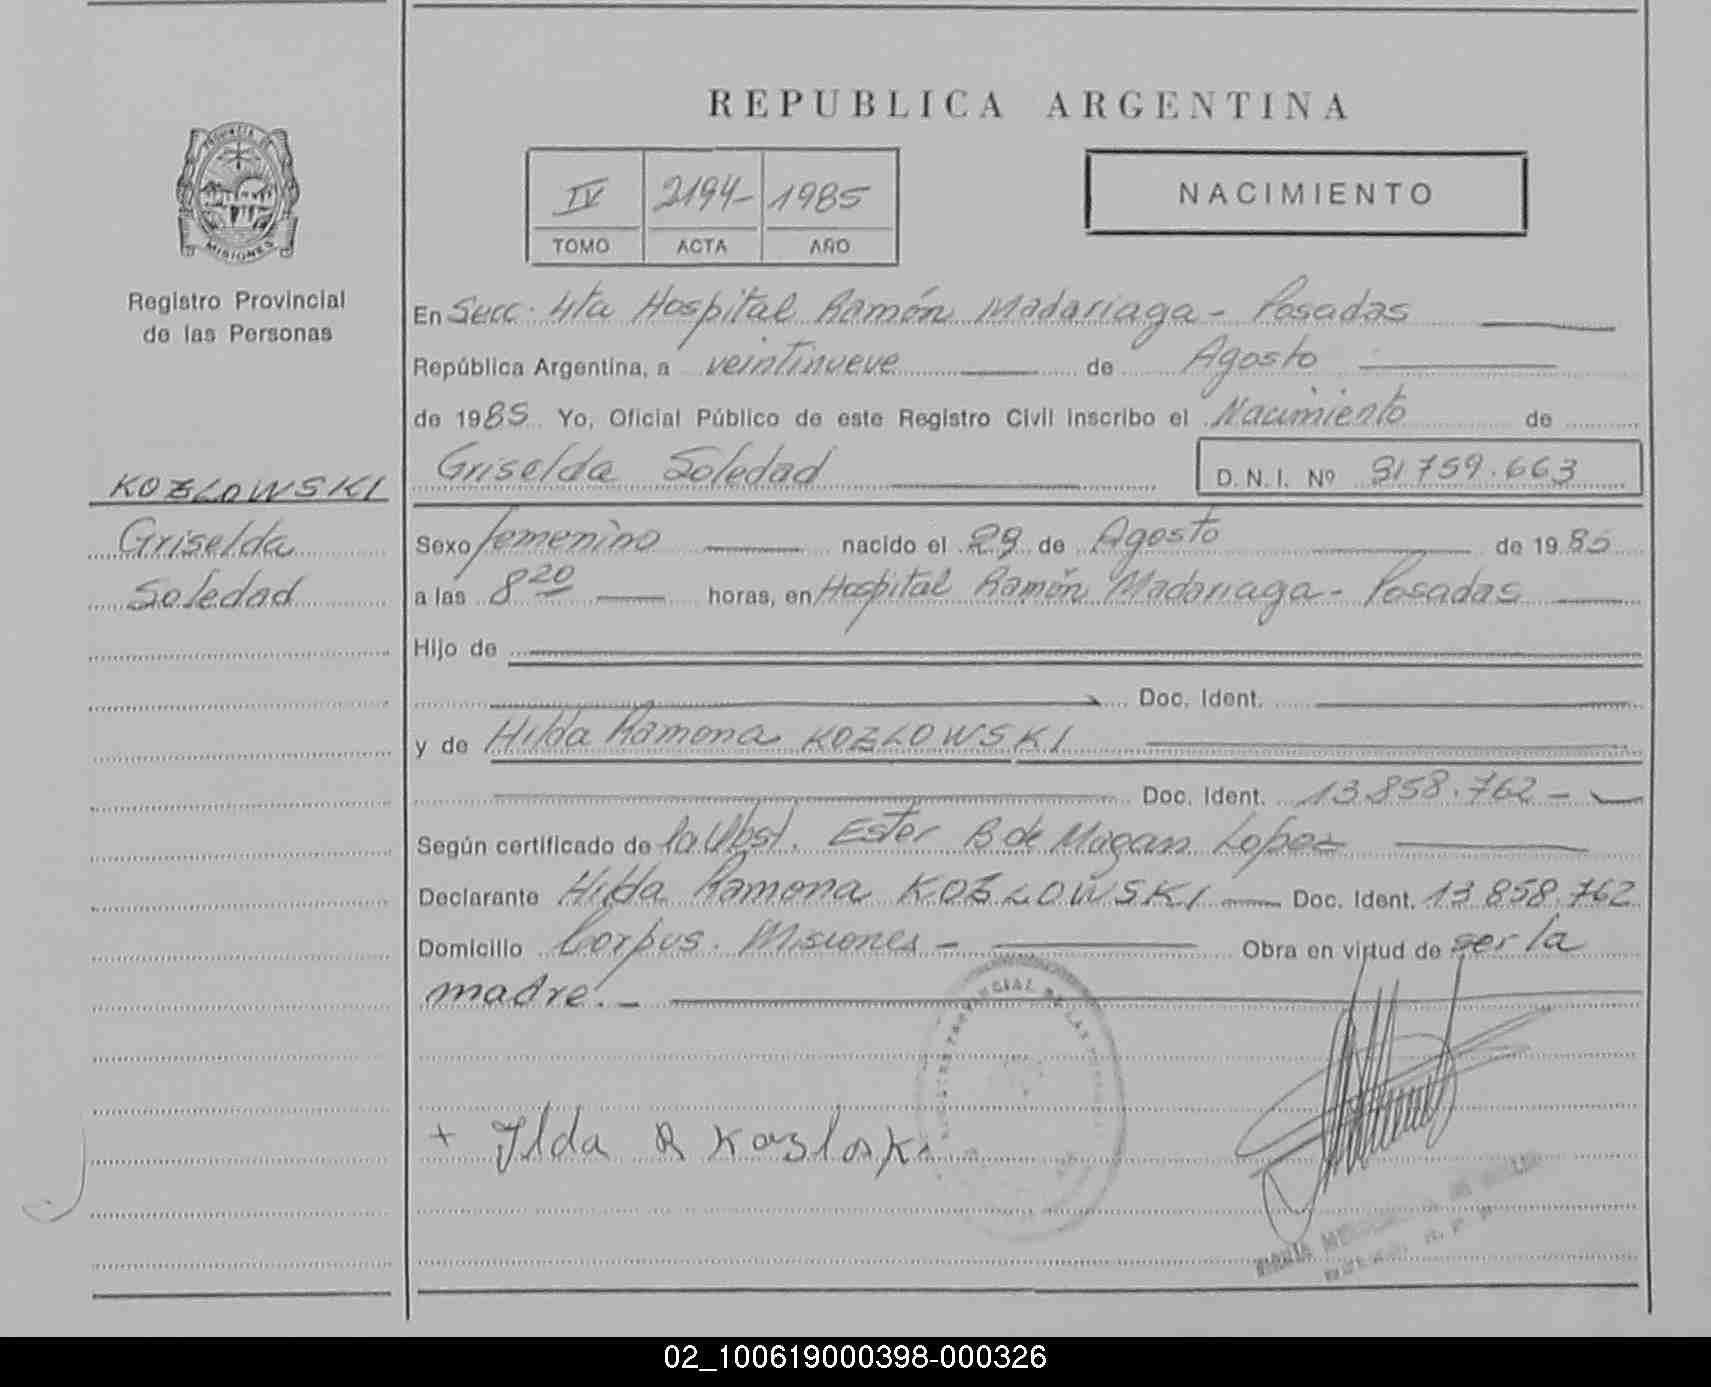 REPUBLICA ARGENTINA
PROVINCIA DE
MISIONES
Registro Provincial
de las Personas
IV 2194- 1985
TOMO ACTA AÑO
NACIMIENTO
En Secc. 4ta Hospital Ramón Madariaga - Posadas
República Argentina, a veintinueve de Agosto
de 1985 Yo, Oficial Público de este Registro Civil inscribo el Nacimiento de
Griselda Soledad D.N.I. Nº 31759.663
KOZLOWSKI
Griselda
Soledad
Sexo femenino nacido el 29 de Agosto de 1985
a las 8 20 horas, en Hospital Ramón Madariaga - Posadas
Hijo de
Doc. Ident.
y de Hilda Ramona KOZLOWSKI
Doc. Ident. 13.858.762 -
Según certificado de la Obst. Ester B de Magan Lopez
Declarante Hilda Ramona KOZLOWSKI Doc. Ident. 13.858.762
Domicilio Corpus. Misiones - Obra en virtud de ser la
madre. -
+ Ilda R Kozloski
MARIA
02_100619000398-000326